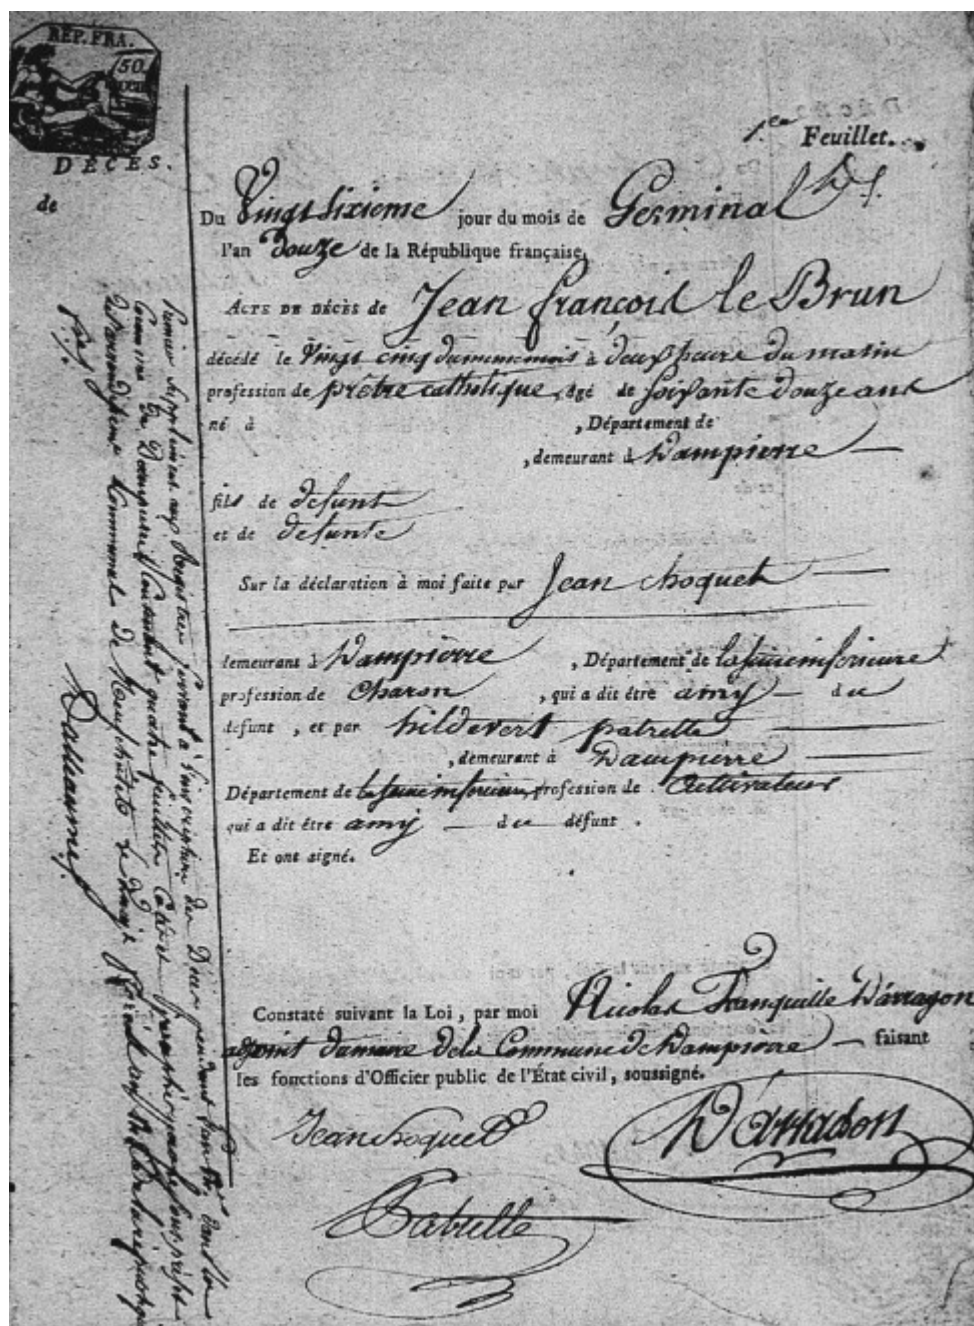 RÉP. FRA.
50
DÉCÈS.
de
1.er Feuillet.
Du Vingt sixieme jour du mois de Germinal
l'an douze de la République française,
ACTE DE DÉCÈS de Jean françois le Brun
décédé le Vingt cinq du meme mois à deux heure du matin
profession de prêtre catholique, âgé de soixante douze ans
né à , Département de
, demeurant à Dampierre
fils de defunt
et de defunte
Sur la déclaration à moi faite par Jean choquet
demeurant à Dampierre , Département de la seine inferieure
profession de Charon , qui a dit être amy du
defunt , et par hildevert patrelle
, demeurant à Dampierre
Département de la seine inferieure, profession de Cultivateur
qui a dit être amy du défunt .
Et ont signé.
Constaté suivant la Loi, par moi Nicolas Tranquille Darragon
adjoint du maire de la Commune de Dampierre faisant
les fonctions d'Officier public de l'État civil, soussigné.
Jean choquet
Darragon
Patrelle
Premier Supplément aux Registres servant à l'inscription des Décès pendant l'an
Commune de Dampierre Contenant quatre feuillets